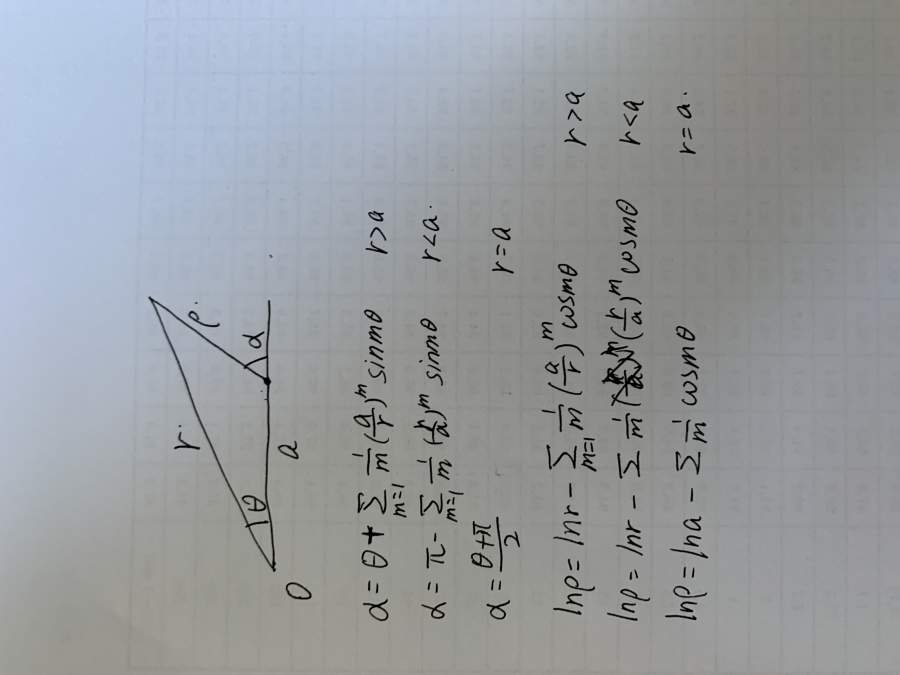 r.
ρ.
θ
α
a
O
α = θ + Σ_{m=1} 1/m (a/r)^m sinmθ r>a
α = π - Σ_{m=1} 1/m (r/a)^m sinmθ r<a.
α = (θ+π)/2 r=a
lnρ = lnr - Σ_{m=1} 1/m (a/r)^m cosmθ r>a
lnρ = lnr - Σ 1/m (r/a)^m cosmθ r<a
lnρ = lna - Σ 1/m cosmθ r=a.